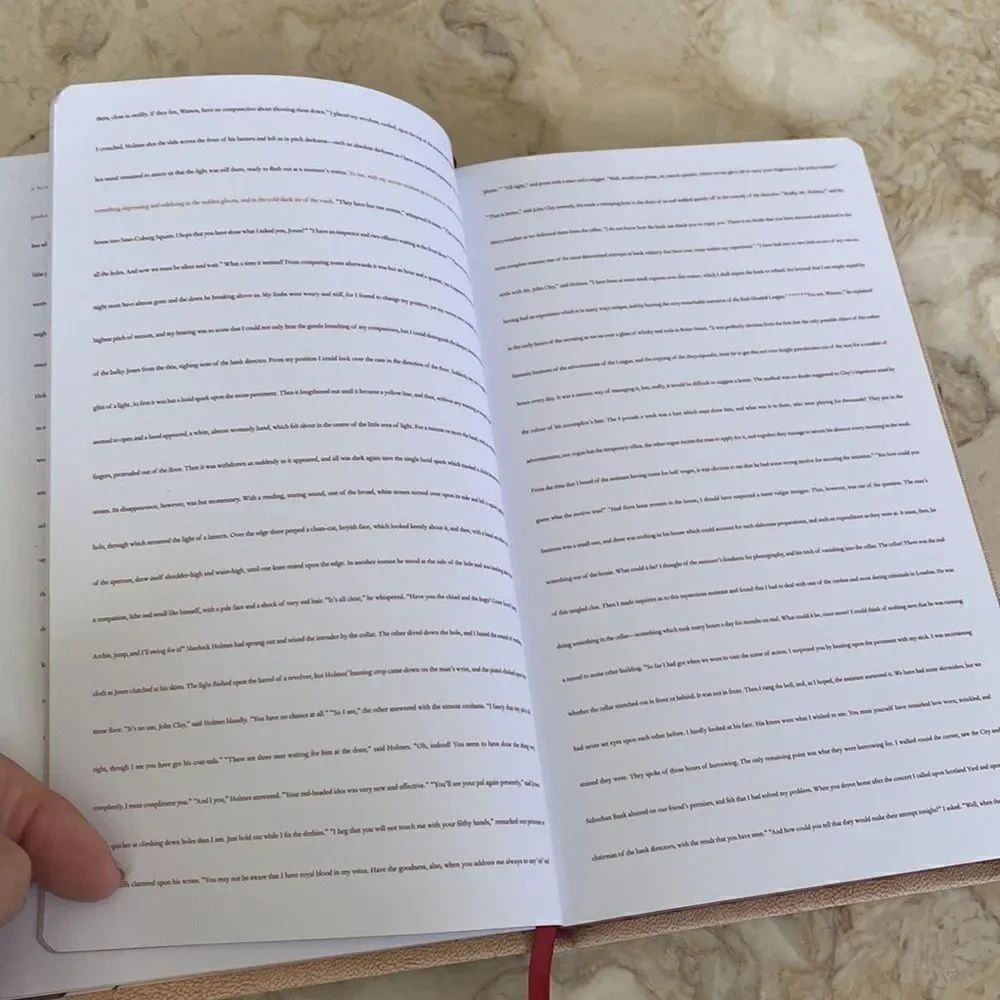 them, close in swiftly. If they fire, Watson, have no compunction about shooting them down." I placed my revolver, cocked, upon the top of the
I crouched. Holmes shot the slide across the front of his lantern and left us in pitch darkness—such an absolute darkness as I have never
hot metal remained to assure us that the light was still there, ready to flash out at a moment's notice. To me, with my nerves worked up to a
something depressing and subduing in the sudden gloom, and in the cold dank air of the vault. "They have but one retreat," whispered Holmes.
house into Saxe-Coburg Square. I hope that you have done what I asked you, Jones?" "I have an inspector and two officers waiting at the front door."
all the holes. And now we must be silent and wait." What a time it seemed! From comparing notes afterwards it was but an hour and a quarter, yet it
night must have almost gone and the dawn be breaking above us. My limbs were weary and stiff, for I feared to change my position; yet my nerves
highest pitch of tension, and my hearing was so acute that I could not only hear the gentle breathing of my companions, but I could distinguish the deeper,
of the bulky Jones from the thin, sighing note of the bank director. From my position I could look over the case in the direction of the floor. Suddenly my
glint of a light. At first it was but a lurid spark upon the stone pavement. Then it lengthened out until it became a yellow line, and then, without any warning
seemed to open and a hand appeared, a white, almost womanly hand, which felt about in the centre of the little area of light. For a minute or more the hand, with
fingers, protruded out of the floor. Then it was withdrawn as suddenly as it appeared, and all was dark again save the single lurid spark which marked a chink
stones. Its disappearance, however, was but momentary. With a rending, tearing sound, one of the broad, white stones turned over upon its side and left a
hole, through which streamed the light of a lantern. Over the edge there peeped a clean-cut, boyish face, which looked keenly about it, and then, with a hand on
of the aperture, drew itself shoulder-high and waist-high, until one knee rested upon the edge. In another instant he stood at the side of the hole and was hauling
a companion, lithe and small like himself, with a pale face and a shock of very red hair. "It's all clear," he whispered. "Have you the chisel and the bags? Great
Archie, jump, and I'll swing for it!" Sherlock Holmes had sprung out and seized the intruder by the collar. The other dived down the hole, and I heard the sound of
cloth as Jones clutched at his skirts. The light flashed upon the barrel of a revolver, but Holmes' hunting crop came down on the man's wrist, and the pistol clinked
stone floor. "It's no use, John Clay," said Holmes blandly. "You have no chance at all." "So I see," the other answered with the utmost coolness. "I fancy that my pal
right, though I see you have got his coat-tails." "There are three men waiting for him at the door," said Holmes. "Oh, indeed! You seem to have done the thing very
completely. I must compliment you." "And I you," Holmes answered. "Your red-headed idea was very new and effective." "You'll see your pal again presently," said Jones.
quicker at climbing down holes than I am. Just hold out while I fix the derbies." "I beg that you will not touch me with your filthy hands," remarked our prisoner
clattered upon his wrists. "You may not be aware that I have royal blood in my veins. Have the goodness, also, when you address me always to say 'sir' and
'please.'" "All right," said Jones with a stare and a snigger. "Well, would you please, sir, march upstairs, where we can get a cab to carry your Highness to the police-station?"
"That is better," said John Clay serenely. He made a sweeping bow to the three of us and walked quietly off in the custody of the detective. "Really, Mr. Holmes," said Mr.
Merryweather as we followed them from the cellar, "I do not know how the bank can thank you or repay you. There is no doubt that you have detected and defeated in the
most complete manner one of the most determined attempts at bank robbery that have ever come within my experience." "I have had one or two little scores of my own to
settle with Mr. John Clay," said Holmes. "I have been at some small expense over this matter, which I shall expect the bank to refund, but beyond that I am amply repaid by
having had an experience which is in many ways unique, and by hearing the very remarkable narrative of the Red-Headed League." * * * * * "You see, Watson," he explained
in the early hours of the morning as we sat over a glass of whisky and soda in Baker Street, "it was perfectly obvious from the first that the only possible object of this rather
fantastic business of the advertisement of the League, and the copying of the Encyclopaedia, must be to get this not over-bright pawnbroker out of the way for a number of
hours every day. It was a curious way of managing it, but, really, it would be difficult to suggest a better. The method was no doubt suggested to Clay's ingenious mind by
the colour of his accomplice's hair. The 4 pounds a week was a lure which must draw him, and what was it to them, who were playing for thousands? They put in the
advertisement, one rogue has the temporary office, the other rogue incites the man to apply for it, and together they manage to secure his absence every morning in the week.
From the time that I heard of the assistant having come for half wages, it was obvious to me that he had some strong motive for securing the situation." "But how could you
guess what the motive was?" "Had there been women in the house, I should have suspected a mere vulgar intrigue. That, however, was out of the question. The man's
business was a small one, and there was nothing in his house which could account for such elaborate preparations, and such an expenditure as they were at. It must, then, be
something out of the house. What could it be? I thought of the assistant's fondness for photography, and his trick of vanishing into the cellar. The cellar! There was the end
of this tangled clue. Then I made inquiries as to this mysterious assistant and found that I had to deal with one of the coolest and most daring criminals in London. He was
doing something in the cellar—something which took many hours a day for months on end. What could it be, once more? I could think of nothing save that he was running
a tunnel to some other building. "So far I had got when we went to visit the scene of action. I surprised you by beating upon the pavement with my stick. I was ascertaining
whether the cellar stretched out in front or behind. It was not in front. Then I rang the bell, and, as I hoped, the assistant answered it. We have had some skirmishes, but we
had never set eyes upon each other before. I hardly looked at his face. His knees were what I wished to see. You must yourself have remarked how worn, wrinkled, and
stained they were. They spoke of those hours of burrowing. The only remaining point was what they were burrowing for. I walked round the corner, saw the City and
Suburban Bank abutted on our friend's premises, and felt that I had solved my problem. When you drove home after the concert I called upon Scotland Yard and upon
chairman of the bank directors, with the result that you have seen." "And how could you tell that they would make their attempt tonight?" I asked. "Well, when they